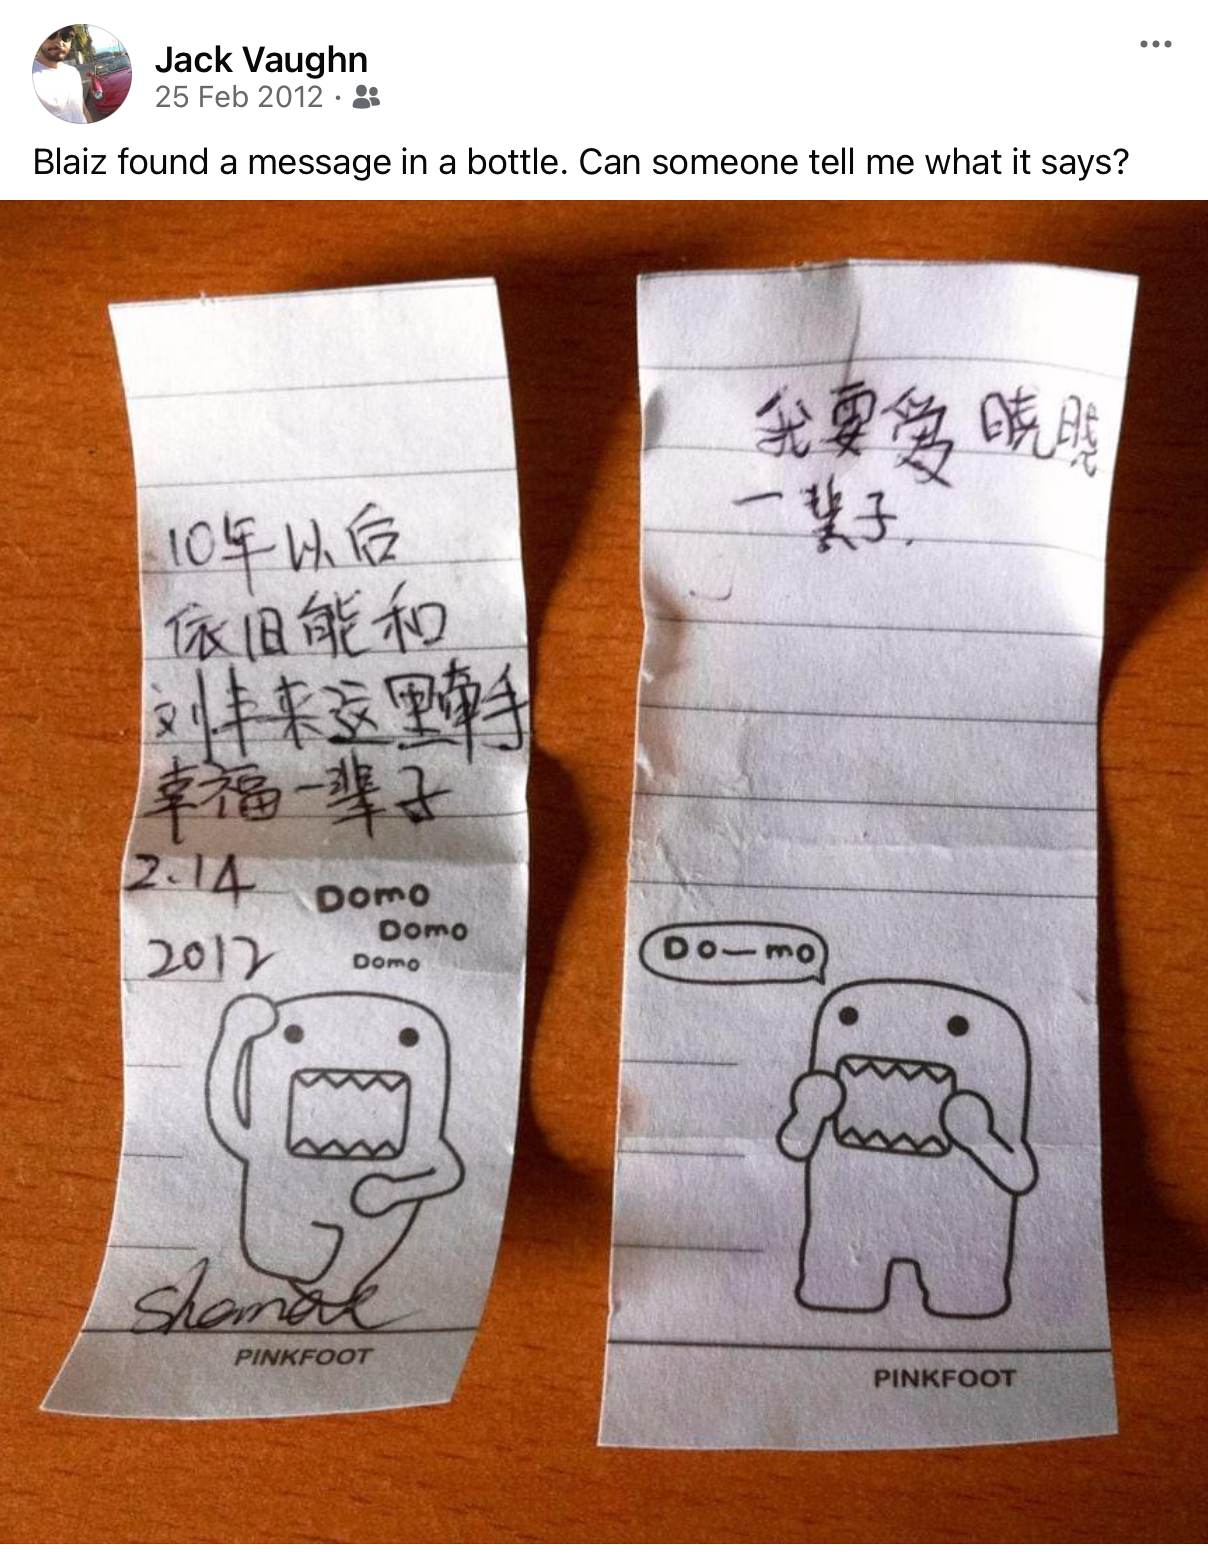 Jack Vaughn
25 Feb 2012
Blaiz found a message in a bottle. Can someone tell me what it says?
10年以后
依旧能和
刘丰来这里牵手
幸福一辈子
2.14
2012
Domo
Domo
Domo
PINKFOOT
我要爱 晓晓
一辈子.
Do—mo
PINKFOOT